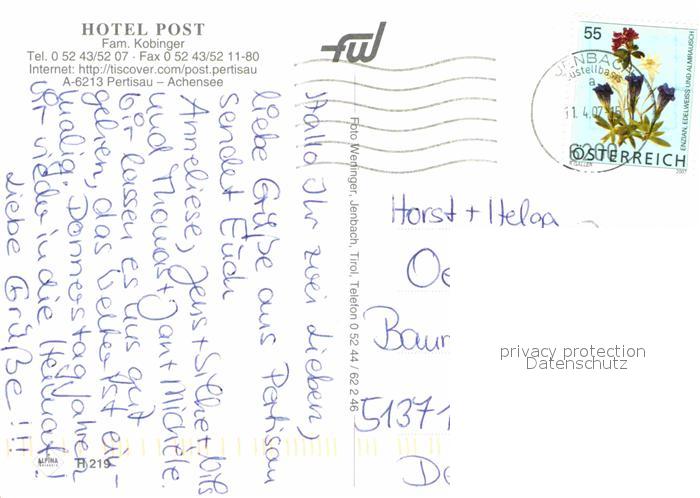 HOTEL POST
Fam. Kobinger
Tel. 0 52 43/52 07 · Fax 0 52 43/52 11-80
Internet: http://tiscover.com/post.pertisau
A-6213 Pertisau – Achensee
fwj
Hallo Ihr zwei Lieben,
liebe Grüße aus Pertisau
sendet Euch
Anneliese, Jens + Silke + Nils
und Thomas + Jan + Michele.
Wir lassen es uns gut
gehen, das Wetter ist ein-
malig. Donnerstag fahren
wir wieder in die Heimat!
Liebe Grüße!!!
ALPINA
H 219
Foto Weninger, Jenbach, Tirol, Telefon 0 52 44 / 62 2 46
55
ENZIAN, EDELWEISS UND ALMRAUSCH
ÖSTERREICH
2007
JENBACH
Zustellbasis
a
11. 4. 07-15
6200
Horst + Helga
Oe
Baum
51371
De
privacy protection
Datenschutz